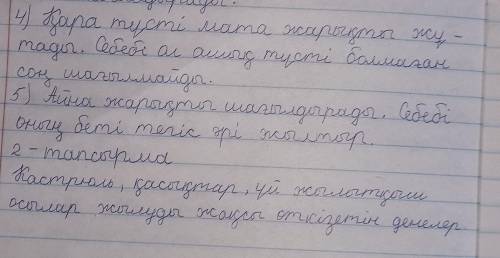 4) Қара түсті мата жарықты жұ-
тады. Себебі ол ашық түсті болмаған
соң шағылмайды.
5) Айна жарықты шағылдырады. Себебі
оның беті тегіс әрі жылтыр.
2-тапсырма
Кастрюль, қасықтар, үй жылытқыш
осылар жылуды жақсы өткізетін денелер